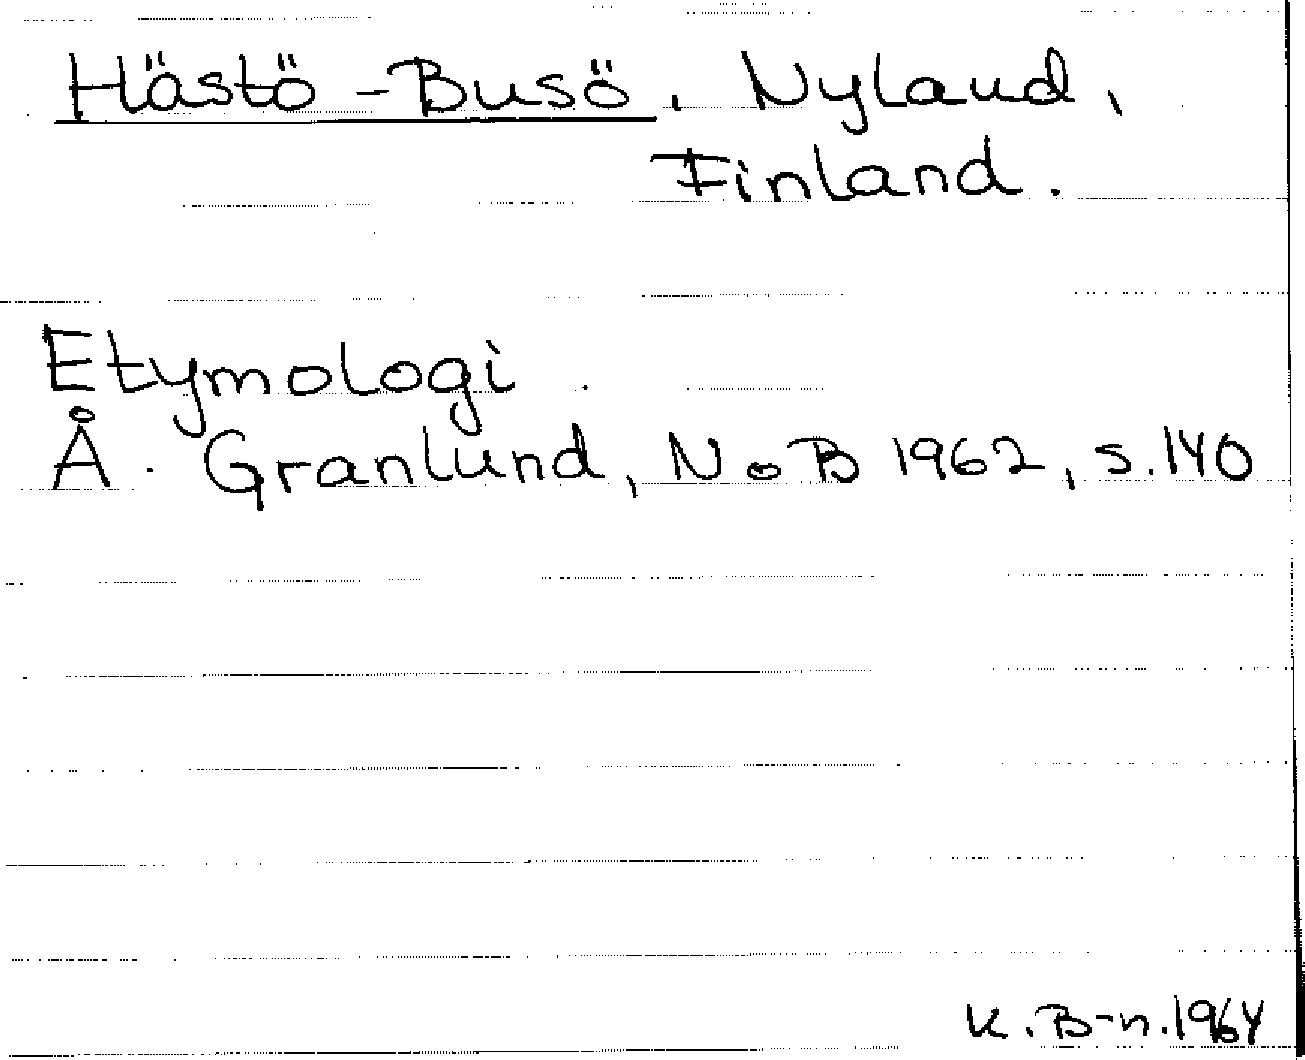 Hästö-Busö. Nyland,
Finland.
Etymologi.
Å. Granlund, NoB 1962, s.140
K.B-n.1964